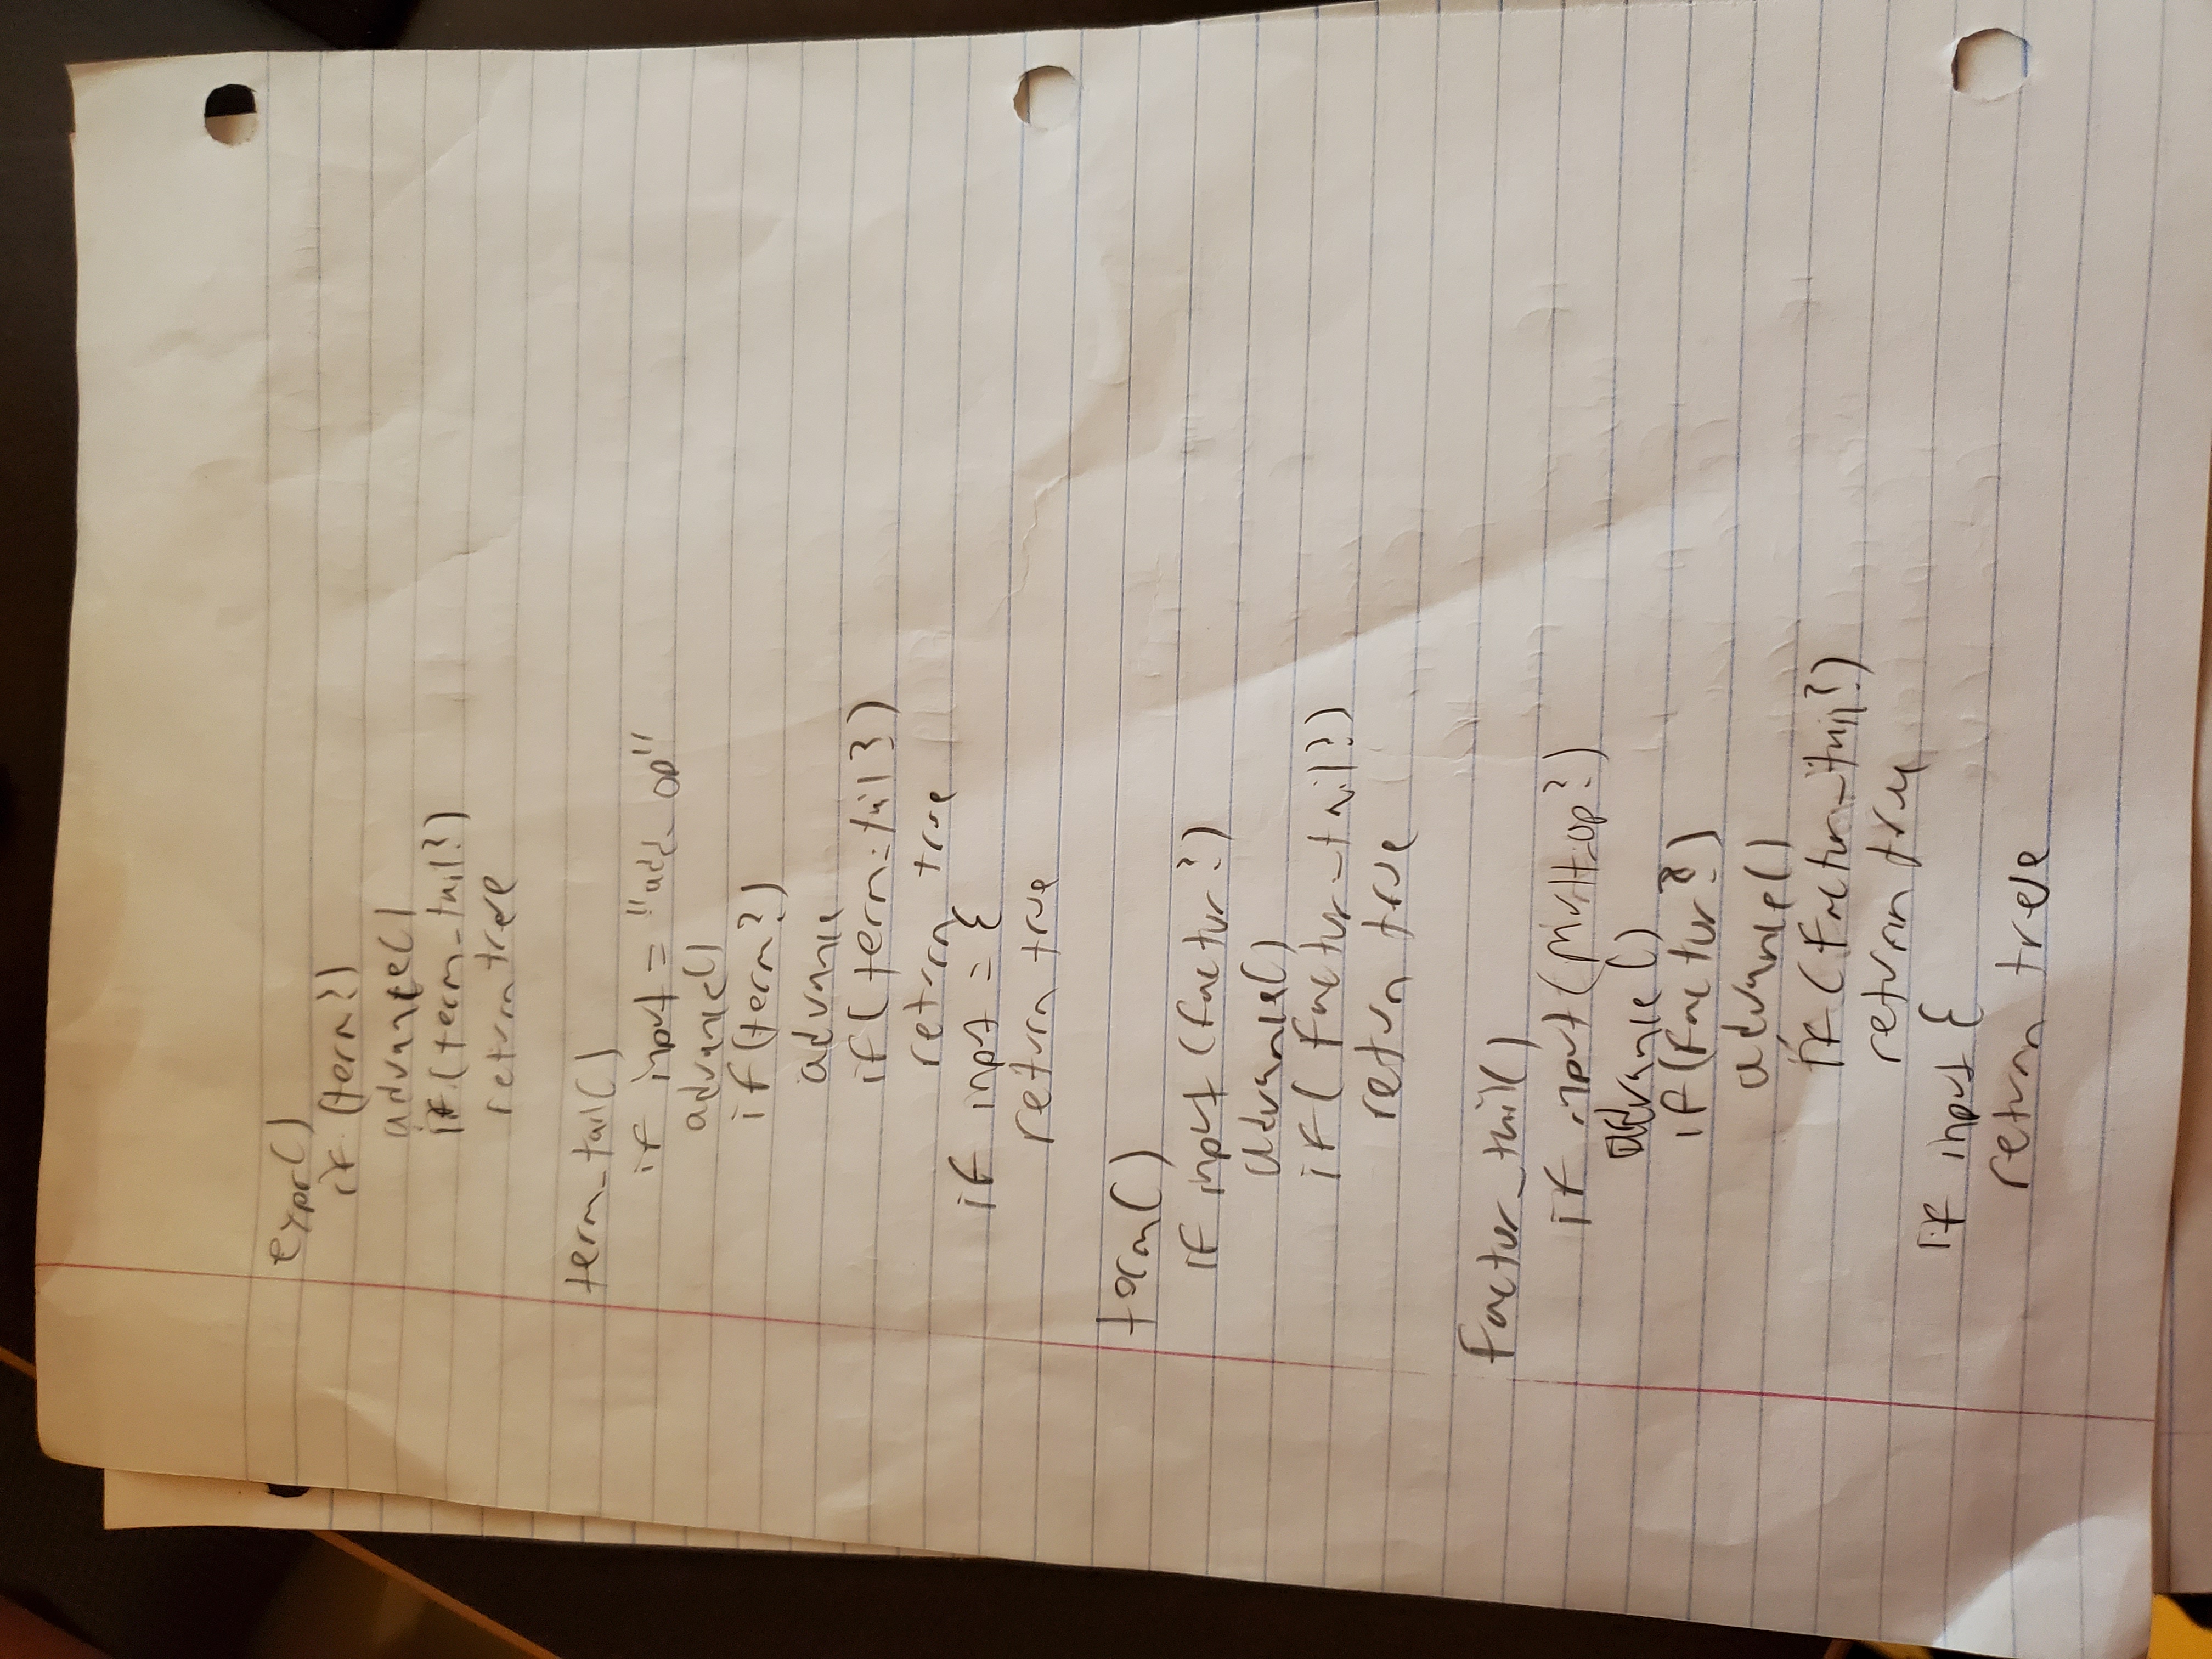 expr()
if (term?)
advance()
if (term_tail?)
return true
term_tail()
if input = "add_op"
advance()
if (term?)
advance
if (term_tail?)
return true
if input = ξ
return true
term()
if input (factor?)
advance()
if (factor_tail?)
return true
factor_tail()
if input (Mult_op?)
advance()
if (factor?)
advance()
if (factor_tail?)
return true
if input ξ
return true